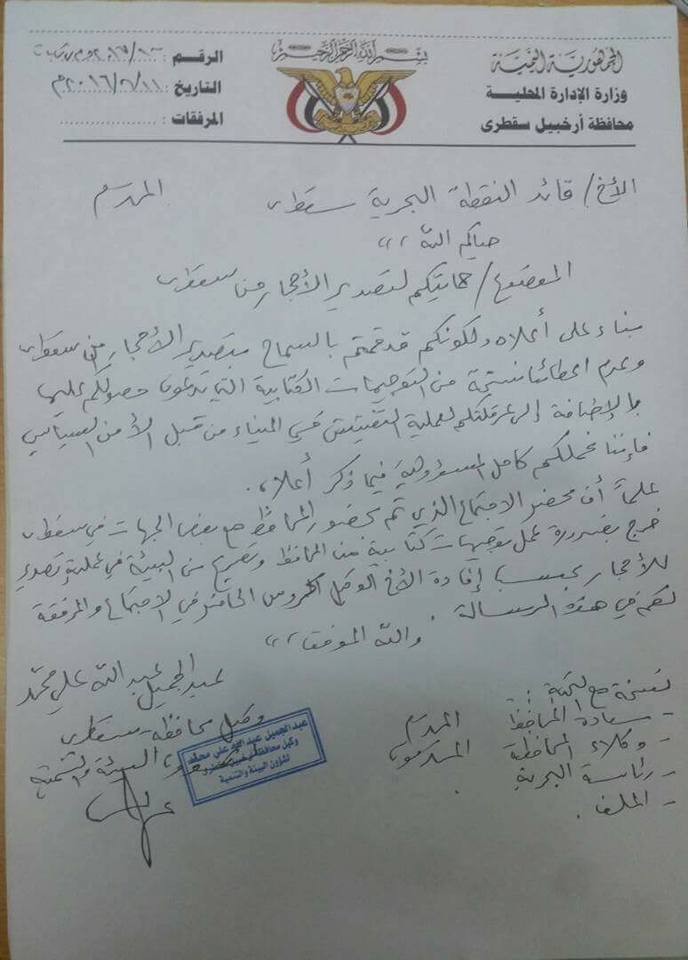 بسم الله الرحمن الرحيم
الجمهورية اليمنية
وزارة الإدارة المحلية
محافظة أرخبيل سقطرى
الرقم :
التاريخ : ٢٠١٦/٦/١١م
المرفقات :
الأخ/ قائد النقطة البحرية سقطرى المحترم
حياكم الله ,,
الموضوع/ حمايتكم لتصدير الأحجار من سقطرى
بناء على أعلاه ولكونكم قد قمتم بالسماح بتصدير الأحجار من سقطرى
وعدم اعطائنا نسخة من التوجيهات الكتابية التي تدعون حصولكم عليها
بالإضافة إلى عرقلتكم لعملية التفتيش في الميناء من قبل الأمن السياسي
فإننا نحملكم كامل المسؤولية فيما ذكر أعلاه.
علماً أن محضر الاجتماع الذي تم بحضور المحافظ مع بعض الجهات في سقطرى
خرج بضرورة عمل توجيهات كتابية من المحافظ وتصريح من البيئة في عملية تصدير
للأحجار بحسب إفادة الأخ الوكيل المحروس الحاضر في الاجتماع والمرفقة
لكم في هذه الرسالة.
والله الموفق ,,
عبدالجميل عبدالله علي محمد
وكيل محافظة سقطرى
البيئة والتنمية
عبدالجميل عبدالله علي محمد
وكيل محافظة أرخبيل سقطرى
لشؤون البيئة والتنمية
نسخة مع التحية :
- سعادة المحافظ المحترم
- وكلاء المحافظة المحترمون
- رئاسة البحرية
- الملف.